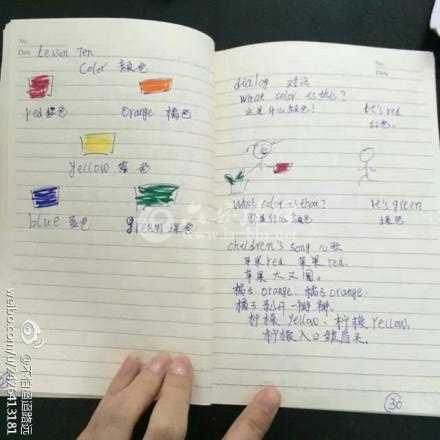 No.
Date
Lesson Ten
Color 颜色
red 红色
Orange 橘色
yellow 黄色
blue 蓝色
green 绿色
No.
Date
dialog 对话
What color is this?
It's red
红色。
What color is that?
It's green
绿色
children's song 儿歌
苹果 red 苹果 red
苹果大又圆。
橘子 orange. 橘子 orange
橘子 瓣瓣
柠檬 yellow, 柠檬 yellow,
柠檬入口 眉头。
30
weibo.com/u/
@不自量道路远